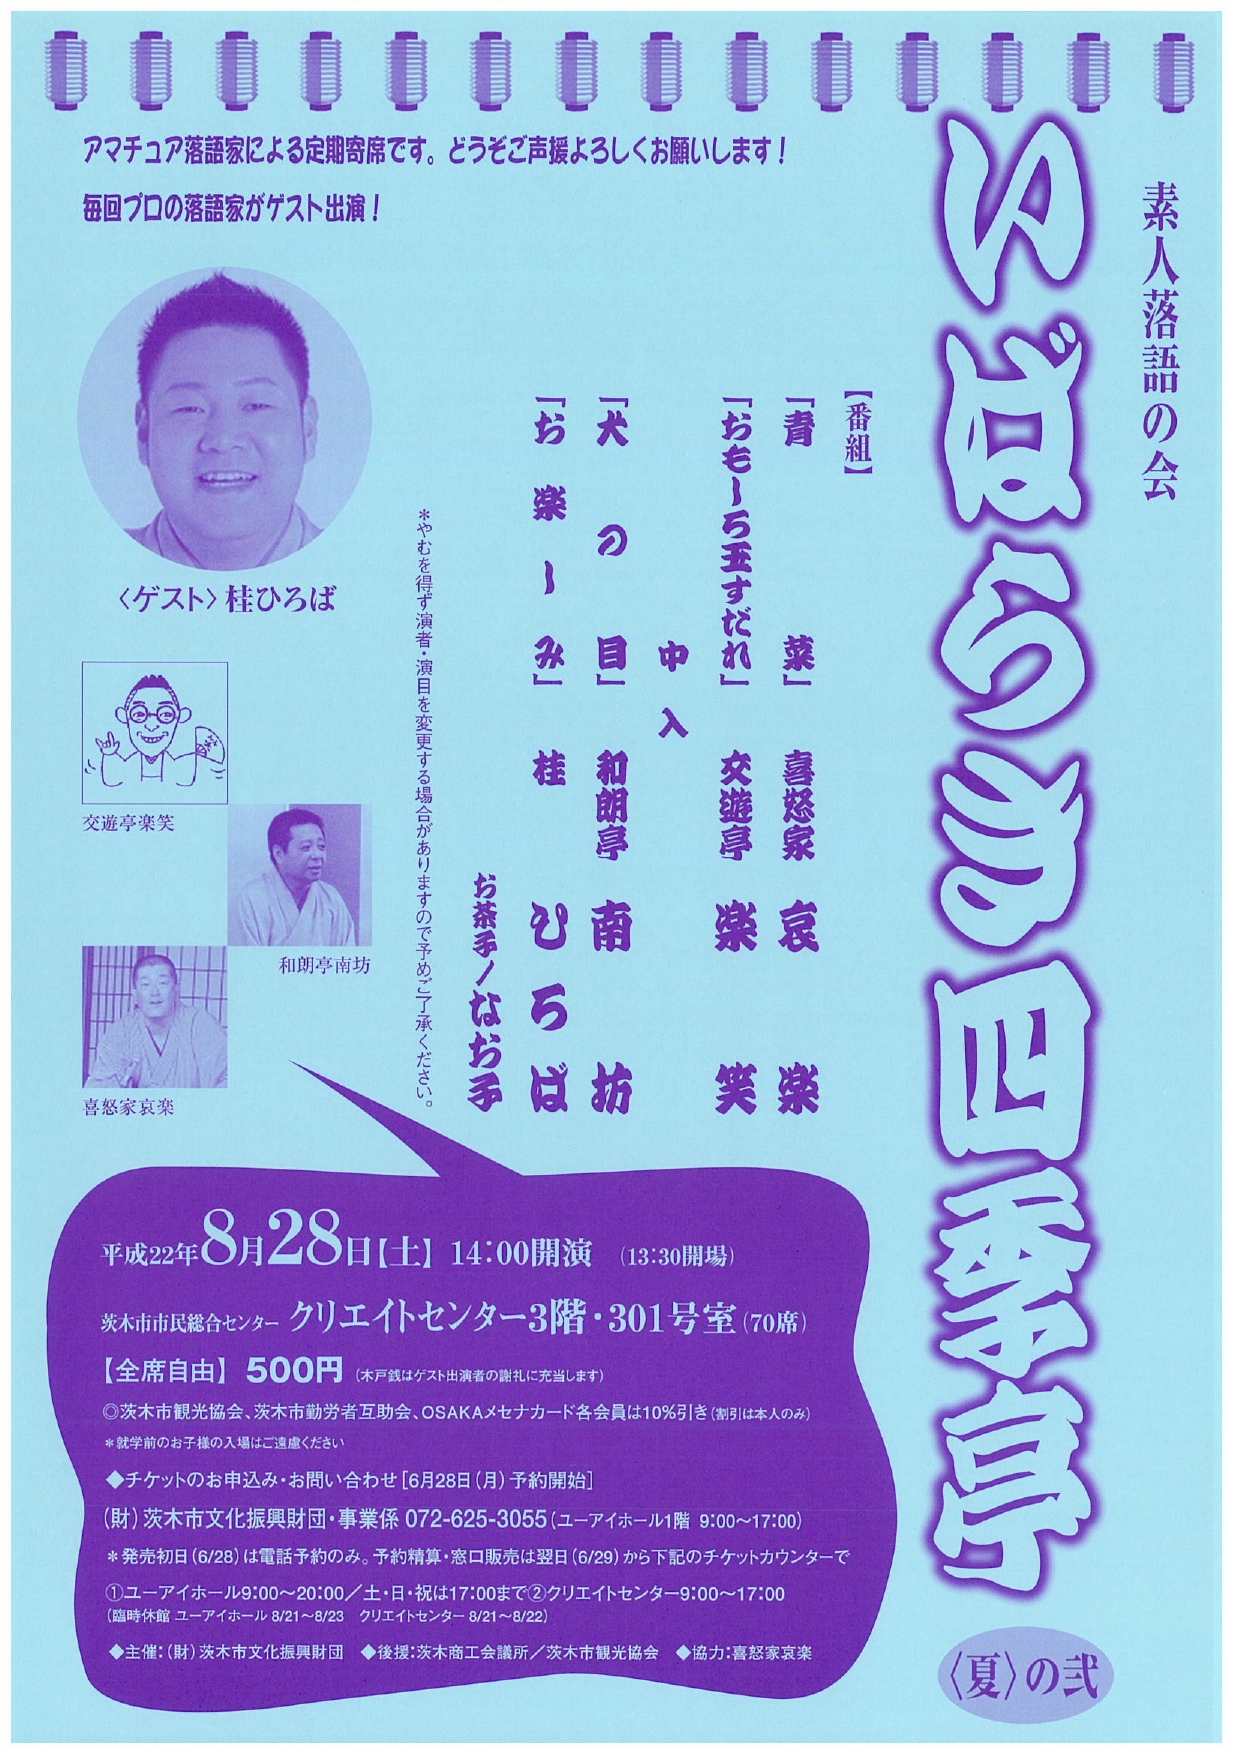 素人落語の会
いばらき四季亭
〈夏〉の弐
アマチュア落語家による定期寄席です。どうぞご声援よろしくお願いします！
毎回プロの落語家がゲスト出演！
【番組】
「青菜」 喜怒家 哀楽
「おもしろ玉すだれ」 交遊亭 楽笑
中入
「犬の目」 和朗亭 南坊
「お楽しみ」 桂 ひろば
お茶子／なお子
＊やむを得ず演者・演目を変更する場合がありますので予めご了承ください。
〈ゲスト〉桂ひろば
交遊亭楽笑
和朗亭南坊
喜怒家哀楽
平成22年8月28日【土】 14：00開演 （13：30開場）
茨木市市民総合センター クリエイトセンター3階・301号室（70席）
【全席自由】 500円 （木戸銭はゲスト出演者の謝礼に充当します）
◎茨木市観光協会、茨木市勤労者互助会、OSAKAメセナカード各会員は10%引き（割引は本人のみ）
＊就学前のお子様の入場はご遠慮ください
◆チケットのお申込み・お問い合わせ［6月28日（月）予約開始］
（財）茨木市文化振興財団・事業係 072-625-3055（ユーアイホール1階 9：00〜17：00）
＊発売初日（6/28）は電話予約のみ。予約精算・窓口販売は翌日（6/29）から下記のチケットカウンターで
①ユーアイホール9：00〜20：00／土・日・祝は17：00まで②クリエイトセンター9：00〜17：00
（臨時休館 ユーアイホール 8/21〜8/23 クリエイトセンター 8/21〜8/22）
◆主催：（財）茨木市文化振興財団 ◆後援：茨木商工会議所／茨木市観光協会 ◆協力：喜怒家哀楽